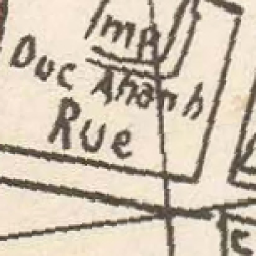 Imp
Duc Ahanh
Rue
C